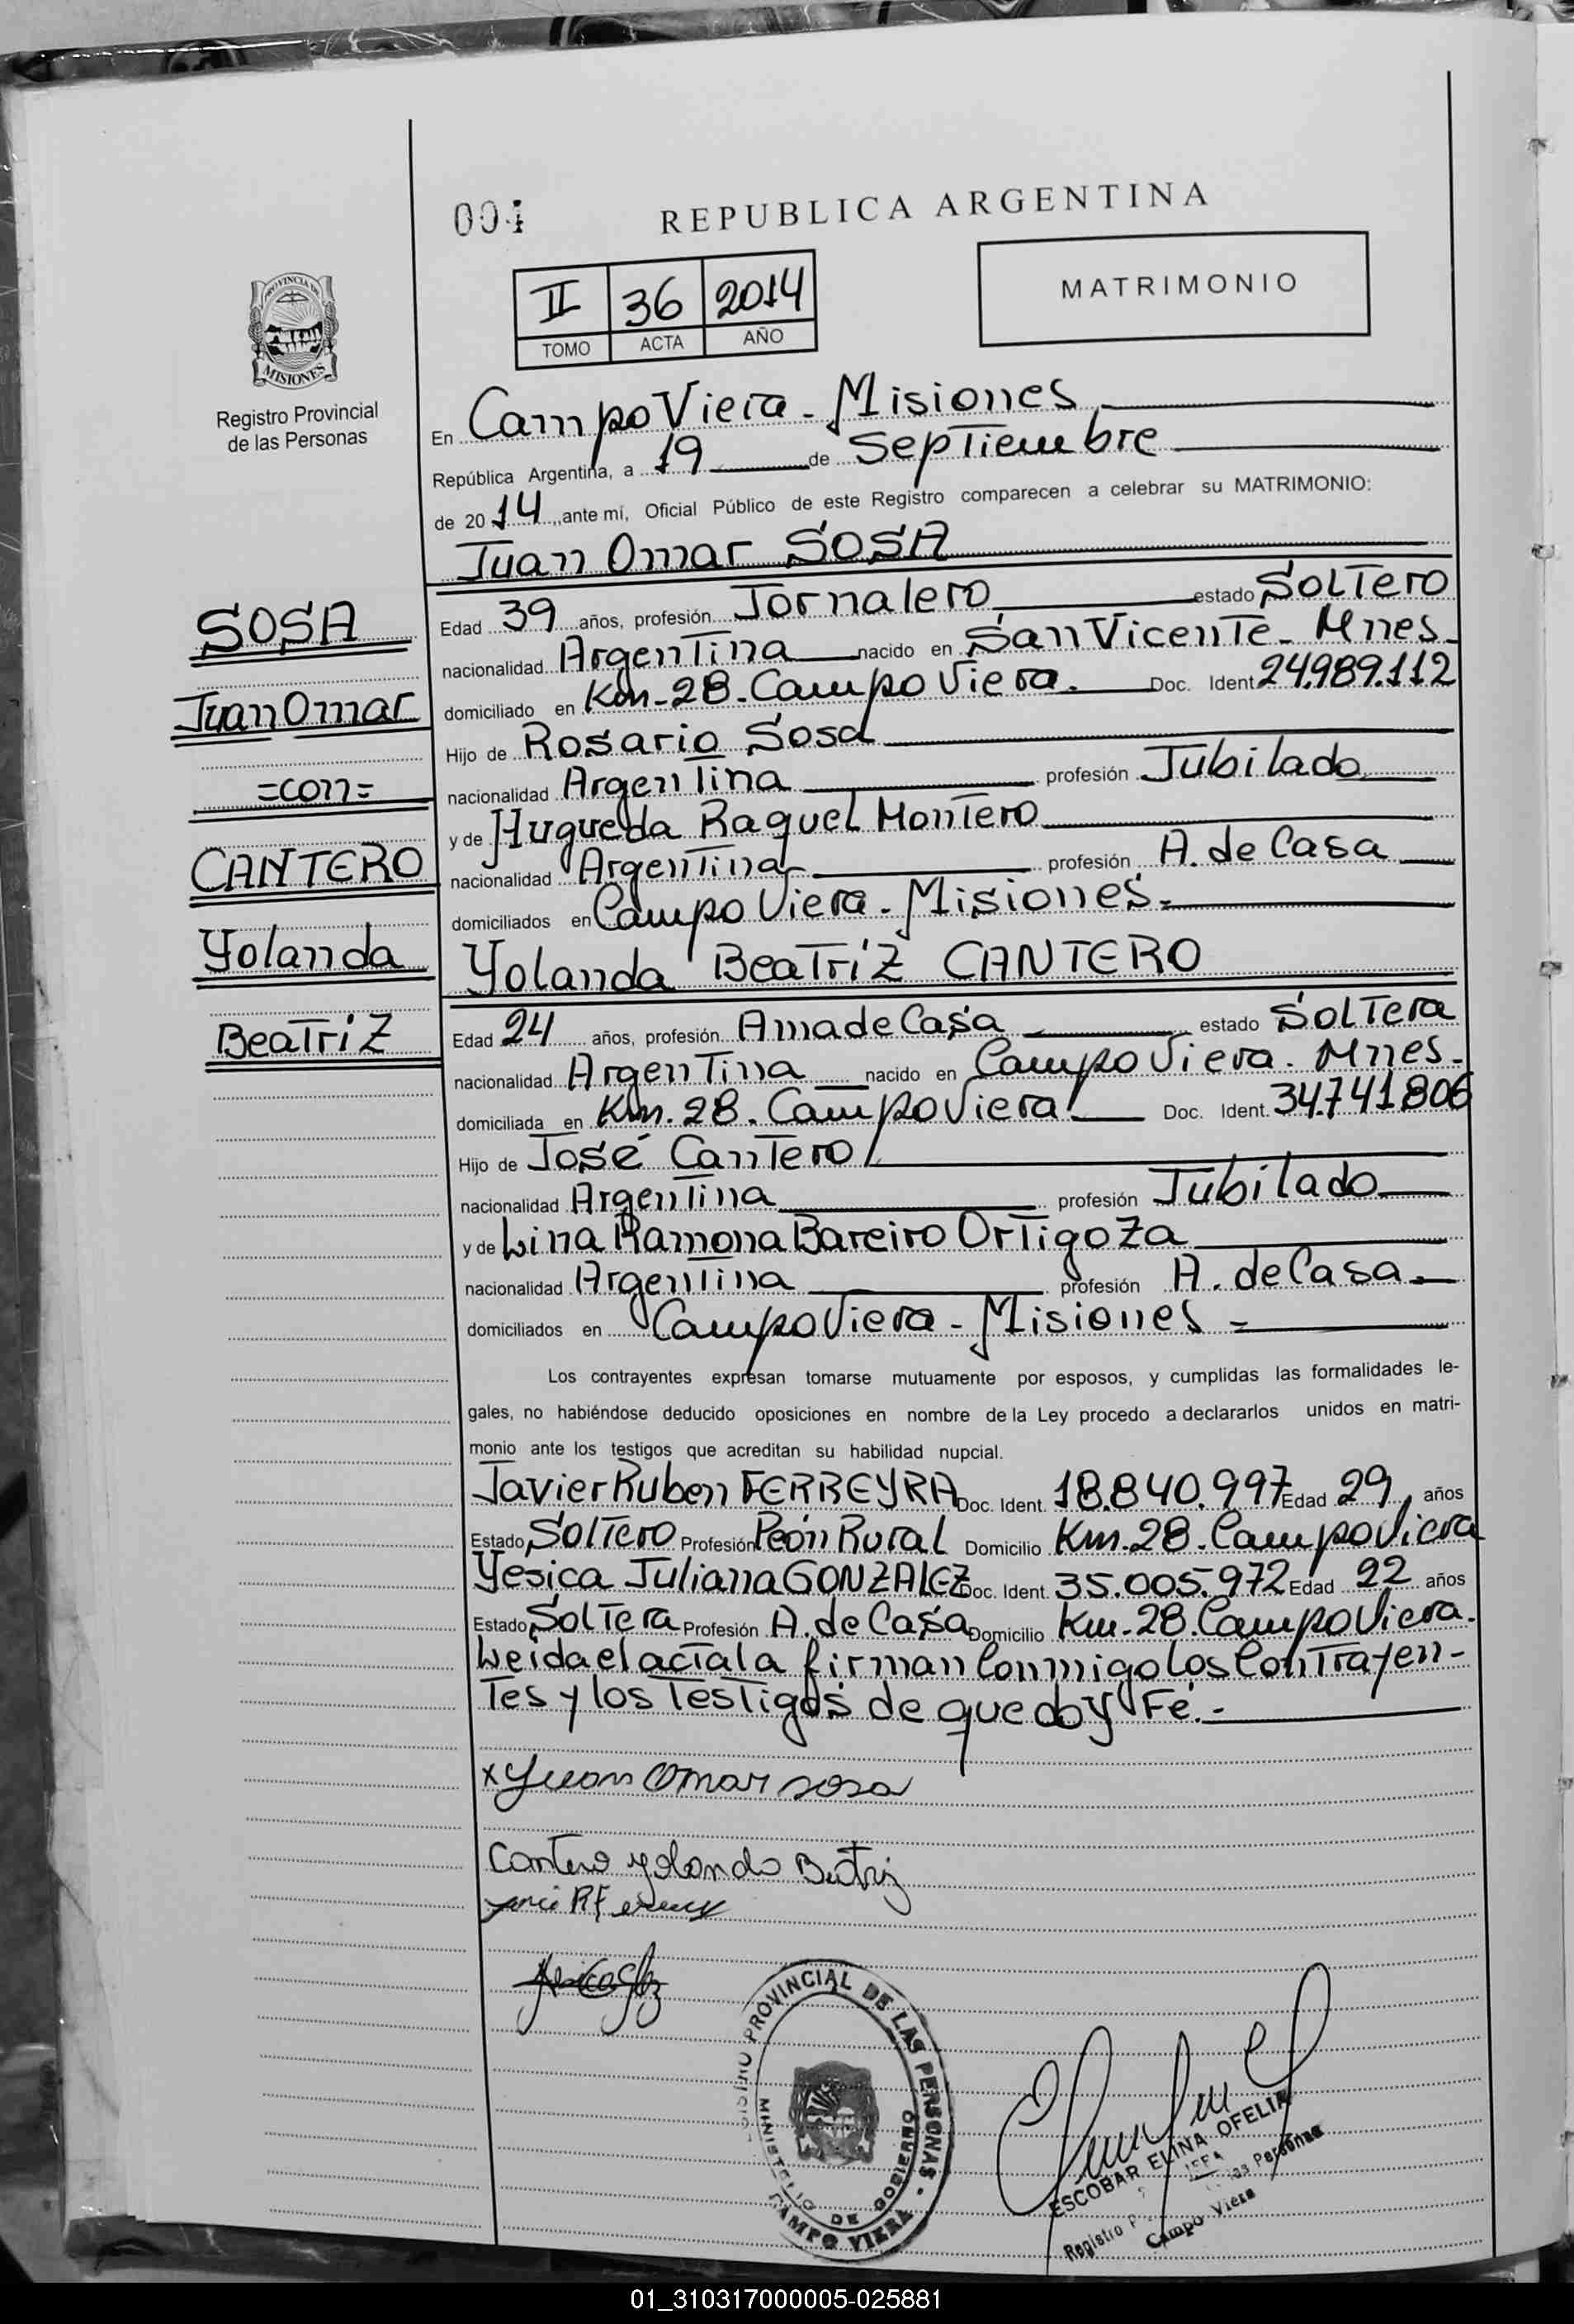 004
REPUBLICA ARGENTINA
II 36 2014
TOMO ACTA AÑO
MATRIMONIO
PROVINCIA DE
MISIONES
Registro Provincial
de las Personas
En Campo Viera - Misiones
República Argentina, a 19 de Septiembre
de 2014, ante mí, Oficial Público de este Registro comparecen a celebrar su MATRIMONIO:
Juan Omar SOSA
SOSA
Juan Omar
=con=
CANTERO
Yolanda
Beatriz
Edad 39 años, profesión Jornalero estado Soltero
nacionalidad Argentina nacido en San Vicente - Mnes.
domiciliado en Km-28-Campo Viera. Doc. Ident 24.989.112
Hijo de Rosario Sosa
nacionalidad Argentina profesión Jubilado
y de Hugueda Raquel Montero
nacionalidad Argentina profesión A. de Casa
domiciliados en Campo Viera - Misiones.
Yolanda Beatriz CANTERO
Edad 24 años, profesión Ama de Casa estado Soltera
nacionalidad Argentina nacido en Campo Viera. Mnes.
domiciliada en Km. 28. Campo Viera. Doc. Ident. 34.741.806
Hijo de José Cantero
nacionalidad Argentina profesión Jubilado
y de Lina Ramona Bareiro Ortigoza
nacionalidad Argentina profesión A. de Casa
domiciliados en Campo Viera - Misiones =
Los contrayentes expresan tomarse mutuamente por esposos, y cumplidas las formalidades le-
gales, no habiéndose deducido oposiciones en nombre de la Ley procedo a declararlos unidos en matri-
monio ante los testigos que acreditan su habilidad nupcial.
Javier Ruben FERREYRA Doc. Ident. 18.840.997 Edad 29 años
Estado Soltero Profesión Peón Rural Domicilio Km. 28. Campo Viera
Yesica Juliana GONZALEZ Doc. Ident. 35.005.972 Edad 22 años
Estado Soltera Profesión A. de Casa Domicilio Km-28. Campo Viera.
Leida el acta la firman Conmigo Los Contrayen-
tes y los Testigos de que doy Fé.-
x Juan Omar sosa
Cantero Yolanda Beatriz
PROVINCIAL DE LAS PERSONAS
MINISTERIO DE GOBIERNO
CAMPO VIERA
ESCOBAR ELINA OFELIA
Registro P las Personas
Campo Viera
01_310317000005-025881